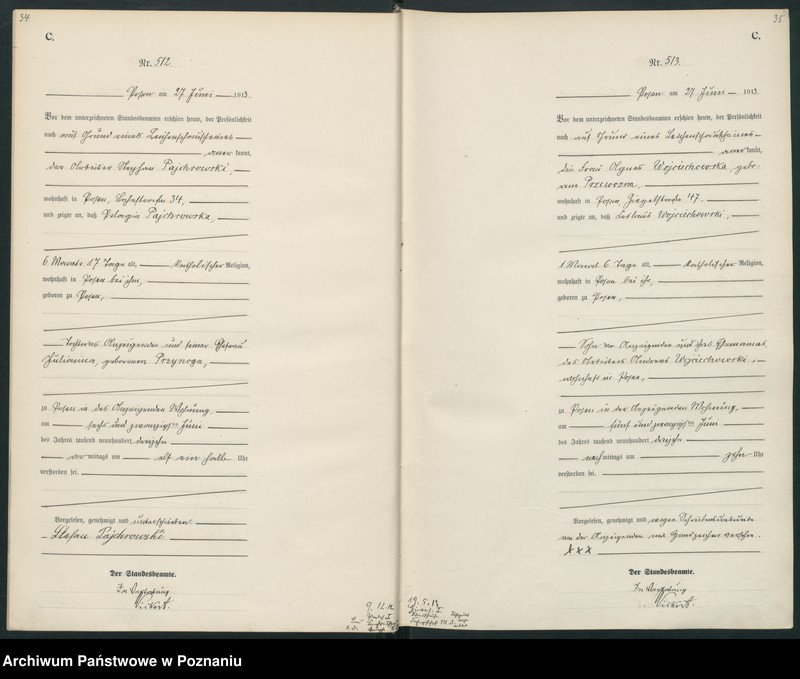 34.
C.
Nr. 512
Posen am 27 Juni 1913.
Vor dem unterzeichneten Standesbeamten erschien heute, der Persönlichkeit
nach auf Grund eines Leichenschauscheines
anerkannt,
der Arbeiter Stephan Pajchrowski,
wohnhaft in Posen, 34,
und zeigte an, daß Pelagia Pajchrowska,
6 Monate 17 Tage alt, katholischer Religion,
wohnhaft in Posen bei ihm,
geboren zu Posen,
Tochter des Anzeigenden und seiner Ehefrau
Julianna, geborenen Przynoga,
zu Posen in des Anzeigenden Wohnung,
am sechs und zwanzigsten Juni
des Jahres tausend neunhundert dreizehn
mittags um elf ein halb Uhr
verstorben sei.
Vorgelesen, genehmigt und unterschrieben.
Stefan Pajchrowski.
Der Standesbeamte.
In Vertretung
9. 12.
35
C.
Nr. 513.
Posen am 27 Juni 1913.
Vor dem unterzeichneten Standesbeamten erschien heute, der Persönlichkeit
nach auf Grund eines Leichenschauscheines
anerkannt,
die Frau Agnes Wojciechowska, gebo-
rene Przewozna,
wohnhaft in Posen, Ziegelstraße 47.
und zeigte an, daß Wojciechowski,
1 Monat 6 Tage alt, katholischer Religion,
wohnhaft in Posen bei ihr,
geboren zu Posen,
Sohn der Anzeigenden und des Ehemannes,
des Arbeiters Andreas Wojciechowski
wohnhaft in Posen,
zu Posen in der Anzeigenden Wohnung,
am fünf und zwanzigsten Juni
des Jahres tausend neunhundert dreizehn
nachmittags um zehn Uhr
verstorben sei.
Vorgelesen, genehmigt und wegen Schreibensunkunde
von der Anzeigenden mit Handzeichen versehen.
XXX
Der Standesbeamte.
In Vertretung
19. 5.
Archiwum Państwowe w Poznaniu